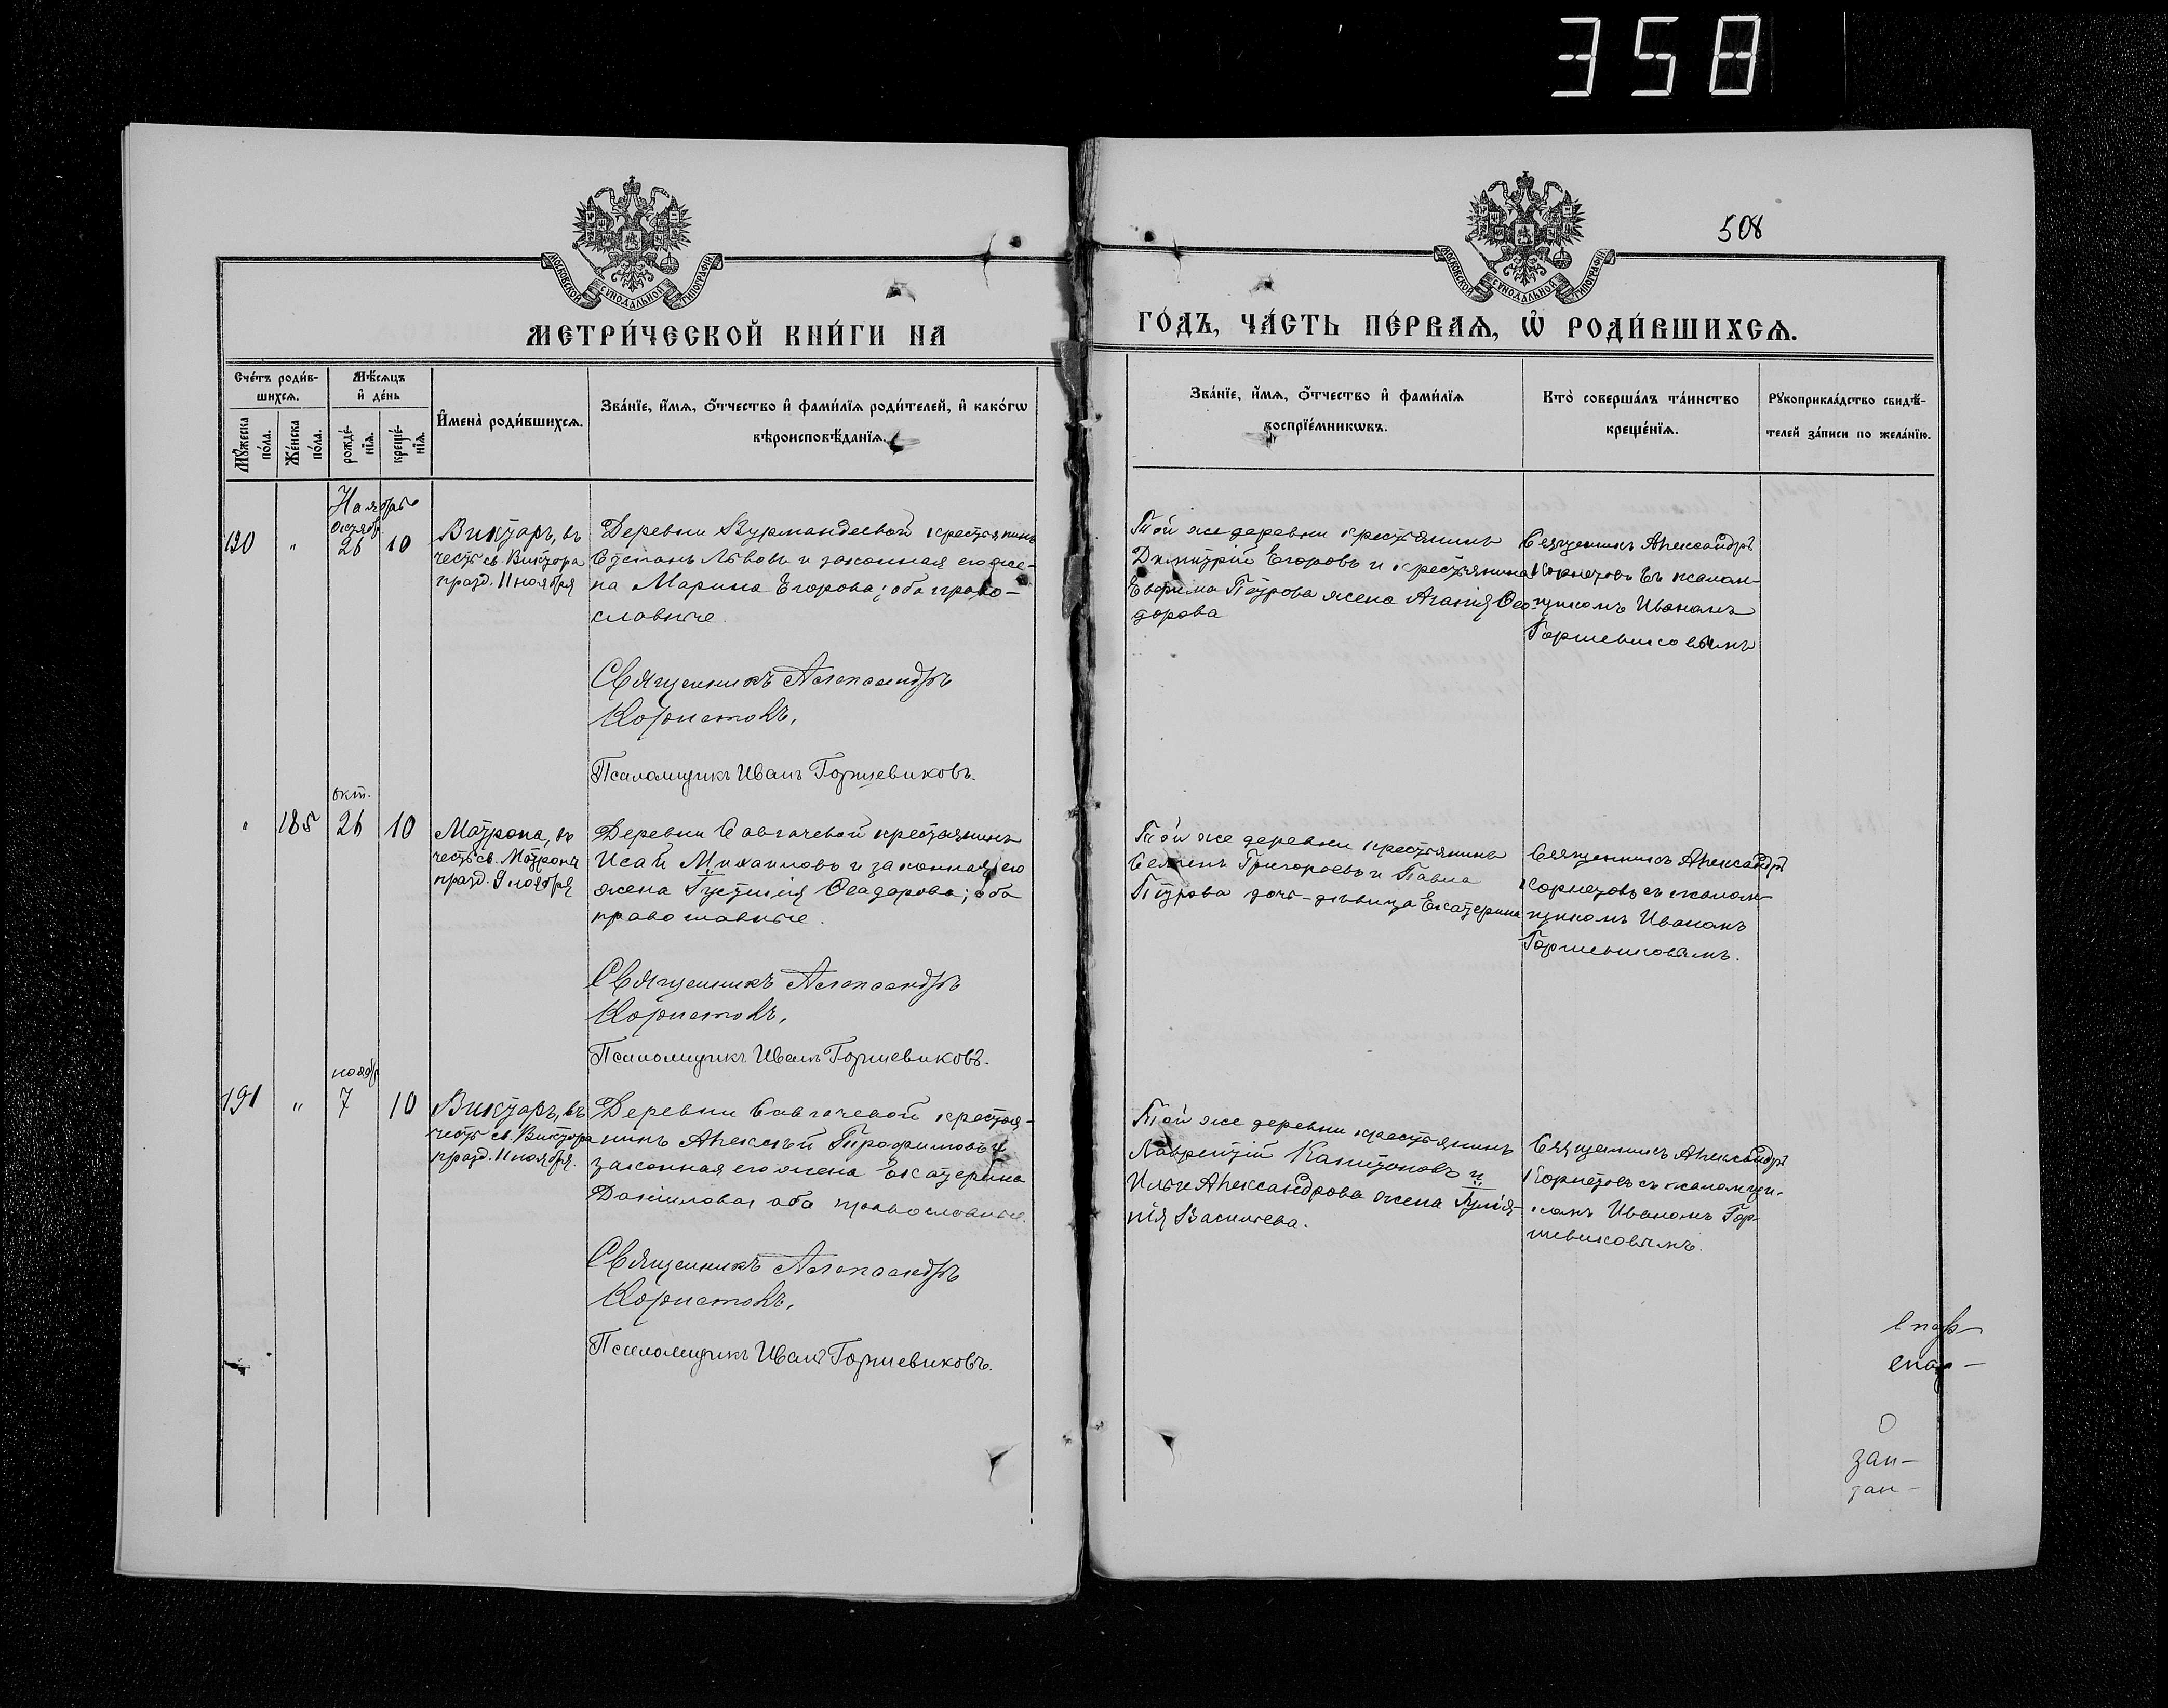 358
508
МОСКОВСКОЙ СѴНОДАЛЬНОЙ ТИПОГРАФІИ
МОСКОВСКОЙ СѴНОДАЛЬНОЙ ТИПОГРАФІИ
МЕТРИ́ЧЕСКОЙ КНИ́ГИ НА
ГО́ДЪ, ЧА́СТЬ ПЕ́РВАѦ, Ѡ҆ РОДИ́ВШИХСѦ.
Сче́тъ роди́в-
шихсѧ.
Мꙋ́жеска
по́ла.
Же́нска
по́ла.
Мѣ́сѧцъ
и҆ де́нь
рожде́-
нїѧ.
креще́-
нїѧ.
И҆мена̀ роди́вшихсѧ.
Зва́нїе, и҆́мѧ, ѻ҆́тчество и҆ фами́лїѧ роди́телей, и҆ како́гѡ
вѣроисповѣ́данїѧ.
Зва́нїе, и҆́мѧ, ѻ҆́тчество и҆ фами́лїѧ
воспрїе́мникѡвъ.
Кто̀ соверша́лъ та́инство
креще́нїѧ.
Рꙋкоприкла́дство свидѣ́-
телей за́писи по жела́нїю.
Ноябрь
октябр.
190 " 26 10
Викторъ, въ
честь св. Виктора
празд. 11 ноября
Деревни Курмандеевой крестьянинъ
Степанъ Львовъ и законная его же-
на Марина Егорова; оба право-
славные.
Священникъ Александръ
Корнетовъ,
Псаломщикъ Иванъ Горшевиковъ.
Той же деревни крестьянинъ
Димитрій Егоровъ и крестьянина
Евфима Петрова жена Агапія Ѳео-
дорова
Священникъ Александръ
Корнетовъ съ псалом-
щикомъ Иваномъ
Горшевиковымъ
окт.
" 185 26 10
Матрона, въ
честь св. Матроны
празд. 9 ноября
Деревни Савгачевой крестьянинъ
Исай Михаиловъ и законная его
жена Іустинія Ѳеодорова; оба
православные.
Священникъ Александръ
Корнетовъ,
Псаломщикъ Иванъ Горшевиковъ.
Той же деревни крестьянинъ
Семенъ Григорьевъ и Павла
Петрова дочь-дѣвица Екатерина
Священникъ Александръ
Корнетовъ съ псалом-
щикомъ Иваномъ
Горшевиковымъ.
ноябр.
191 " 7 10
Викторъ, въ
честь св. Виктора
празд. 11 ноября.
Деревни Савгачевой крестья-
нинъ Алексѣй Трофимовъ и
законная его жена Екатерина
Даниловая оба православные.
Священникъ Александръ
Корнетовъ,
Псаломщикъ Иванъ Горшевиковъ.
Той же деревни крестьянинъ
Лаврентій Капитоновъ и
Ильи Александрова жена Іуліа-
нія Васильева.
Священникъ Александръ
Корнетовъ съ псаломщи-
комъ Иваномъ Гор-
шевиковымъ.
зап-
зап-